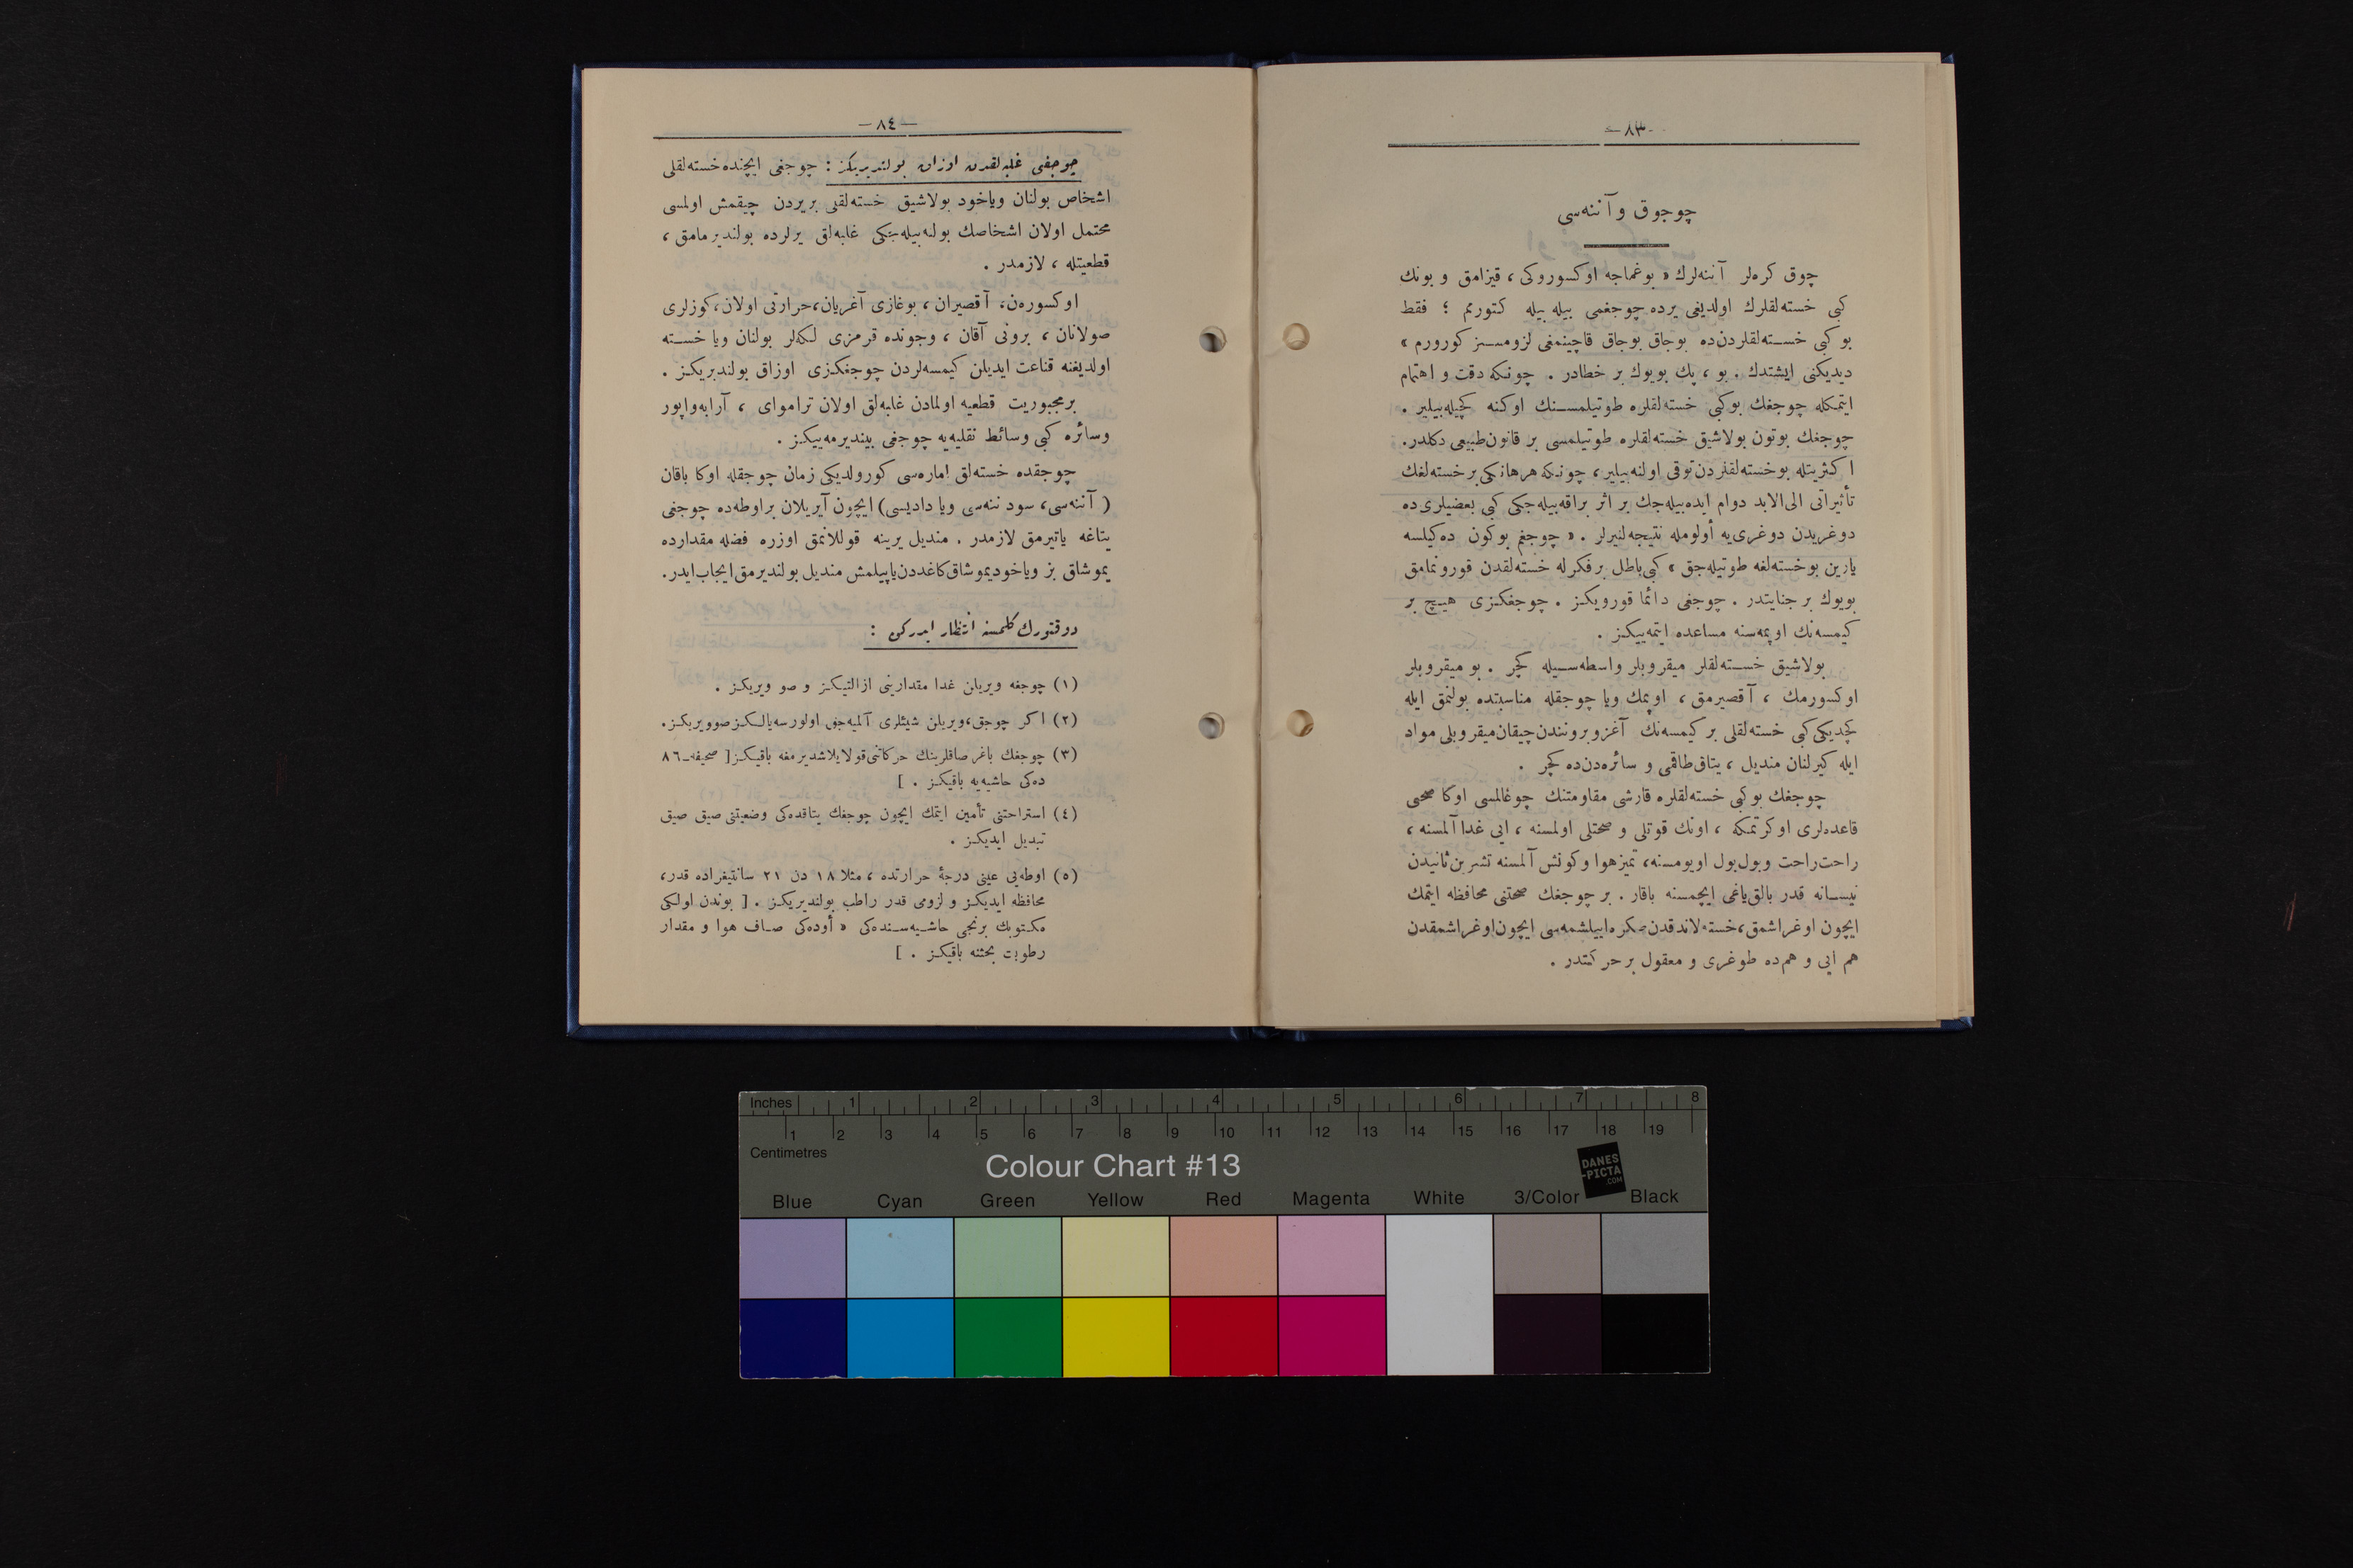 -٨٣-
چوجوق و آننه‌سی
چوق كره‌لر آننه‌لرك « بوغماجه اوكسوروكی ، قیزامق و بونك
كبی خسته‌لقلرك اولدیغی یرده چوجغمی بیله بیله كتورمم ؛ فقط
بو كبی خسته‌لقلردن‌ده بوجاق بوجاق قاچینمغی لزومسز كورورم »
دیدیكنی ایشتدك . بو ، پك بویوك بر خطادر . چونكه دقت و اهتمام
ایتمكله چوجغك بوكبی خسته‌لقلره طوتیلمسنك اوكنه كچیله‌بیلیر .
چوجغك بوتون بولاشیق خسته‌لقلره طوتیلمسی بر قانون‌طبیعی دكلدر.
اكثریتله بوخسته‌لقلردن‌توقی اولنه‌بیلیر ، چونكه هرهانكی‌بر خسته‌لغك
تأثیراتی الی‌الابد دوام ایده‌بیله‌جك بر اثر براقه‌بیله‌جكی كبی بعضیلری‌ده
دوغریدن دوغری‌یه أولومله نتیجه‌لنیرلر . « چوجغم بوكون ده‌كیلسه
یارین بوخسته‌لغه طوتیله‌جق » كبی‌باطل برفكرله خسته‌لقدن قورونمامق
بویوك بر جنایتدر . چوجغی دائما قورویكز . چوجغكزی هیچ بر
كیمسه‌نك اوپمه‌سنه مساعده ایتمه‌ییكز .
بولاشیق خسته‌لقلر میقروبلر واسطه‌سیله كچر . بو میقروبلر
اوكسورمك ، آقصیرمق ، اوپمك ویا چوجقله مناسبتده بولنمق ایله
كچدیكی كبی خسته‌لقلی بر كیمسه‌نك آغزوبروننندن‌چیقان‌میقروبلی مواد
ایله كیرلنان مندیل ، یتاق‌طاقمی و سائره‌دن‌ده كچر .
چوجغك بوكبی خسته‌لقلره قارشی مقاومتنك چوغالمسی اوكا صحی
قاعده‌لری اوكرتمكه ، اونك قوتلی و صحتلی اولمسنه ، ایی غدا آلمسنه ،
راحت‌راحت وبول‌بول اویومسنه، تمیزهوا وكونش آلمسنه تشرین‌ثانیدن
نیسانه قدر بالق‌یاغی ایچمسنه باقار . بر چوجغك صحتنی محافظه ایتمك
ایچون اوغراشمق، خسته‌لاندقدن‌صكره‌اییلشمه‌سی ایچون‌اوغراشمقدن
هم ایی و هم‌ده طوغری و معقول برحركتدر .
—٨٤—
چوجغی غلبه‌لقدن اوزاق بولندیریكز : چوجغی ایچنده خسته‌لقلی
اشخاص بولنان ویاخود بولاشیق خسته‌لقلی بریردن چیقمش اولمسی
محتمل اولان اشخاصك بولنه‌بیله‌جكی غلبه‌لق یرلرده بولندیرمامق ،
قطعیتله ، لازمدر .
اوكسوره‌ن، آقصیران ، بوغازی آغریان،حرارتی اولان،كوزلری
صولانان ، برونی آقان ، وجونده قرمزی لكه‌لر بولنان ویا خسته
اولدیغنه قناعت ایدیلن كیمسه‌لردن چوجغكزی اوزاق بولندیریكز .
برمجبوریت قطعیه اولمادن غلبه‌لق اولان تراموای ، آرابه‌واپور
وسائره كبی وسائط نقلیه‌یه چوجغی بیندیرمه‌ییكز .
چوجقده خسته‌لق اماره‌سی كورولدیكی زمان چوجقله اوكا باقان
( آننه‌سی، سود ننه‌سی ویا دادیسی) ایچون آیریلان براوطه‌ده چوجغی
یتاغه یاتیرمق لازمدر . مندیل یرینه قوللانمق اوزره فضله مقدارده
یموشاق بز ویاخودیموشاق‌كاغددن‌یاپیلمش مندیل بولندیرمق‌ایجاب‌ایدر.
دوقتورك كلمسنه انتظار ایدركن :
(١) چوجغه ویریلن غدا مقدارینی ازالتیكز و صو ویریكز .
(٢) اكر چوجق،ویریلن شیئلری آلمیه‌جق اولورسه‌یالكزصوویریكز.
(٣) چوجغك باغرصاقلرینك حركاتنی‌قولایلاشدیرمغه باقیكز [ صحیفه‌ـ٨٦
ده‌كی حاشیه‌یه باقیكز . ]
(٤) استراحتنی تأمین ایتمك ایچون چوجغك یتاقده‌كی وضعیتنی صیق صیق
تبدیل ایدیكز .
(٥) اوطه‌یی عینی درجهٔ حرارتده ، مثلا ١٨ دن ٢١ سانتیغراده قدر،
محافظه ایدیكز و لزومی قدر راطب بولندیریكز . [ بوندن اولكی
مكتوبك برنجی حاشیه‌سنده‌كی « أوده‌كی صاف هوا و مقدار
رطوبت بحثنه باقیكز . ]
Inches 1 2 3 4 5 6 7 8
1 2 3 4 5 6 7 8 9 10 11 12 13 14 15 16 17 18 19
Centimetres
Colour Chart #13
DANES
-PICTA
.COM
Blue Cyan Green Yellow Red Magenta White 3/Color Black